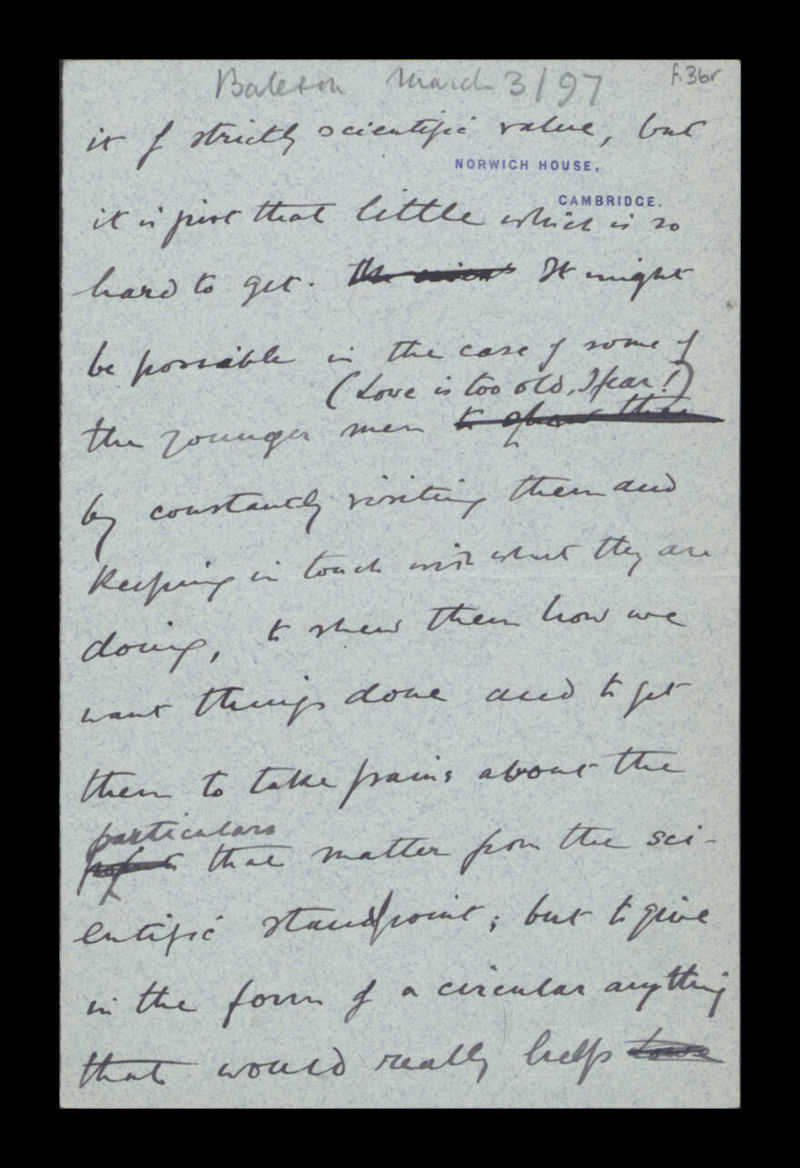 Bateson March 3/97
f.36r
it of strictly scientific value, but
NORWICH HOUSE,
CAMBRIDGE.
it is just that little which is so
hard to get. It might
be possible in the case of some of
(Love is too old, I fear!)
the younger men
by constantly visiting them and
keeping in touch with what they are
doing, to shew them how we
want things done and to get
them to take pains about the
particulars
that matter from the sci-
entific standpoint; but to give
in the form of a circular anything
that would really help